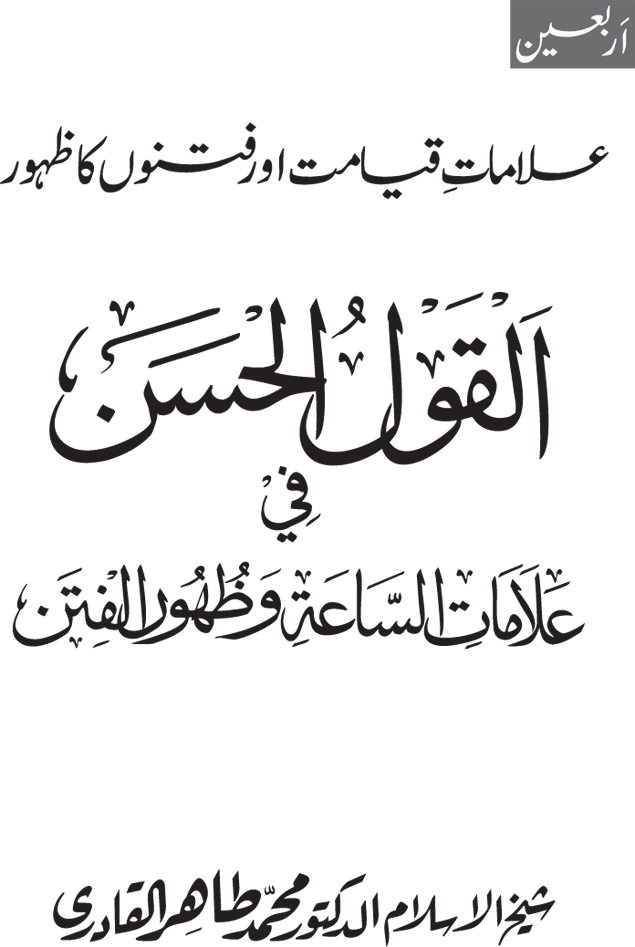 اَربعین
علاماتِ قیامت اور فتنوں کا ظہور
اَلْقَوْلُ الْحَسَنُ
فِي
عَلَامَاتِ السَّاعَةِ وَظُهُوْرِ الْفِتَنِ
شیخ الاسلام الدکتور محمد طاہر القادری